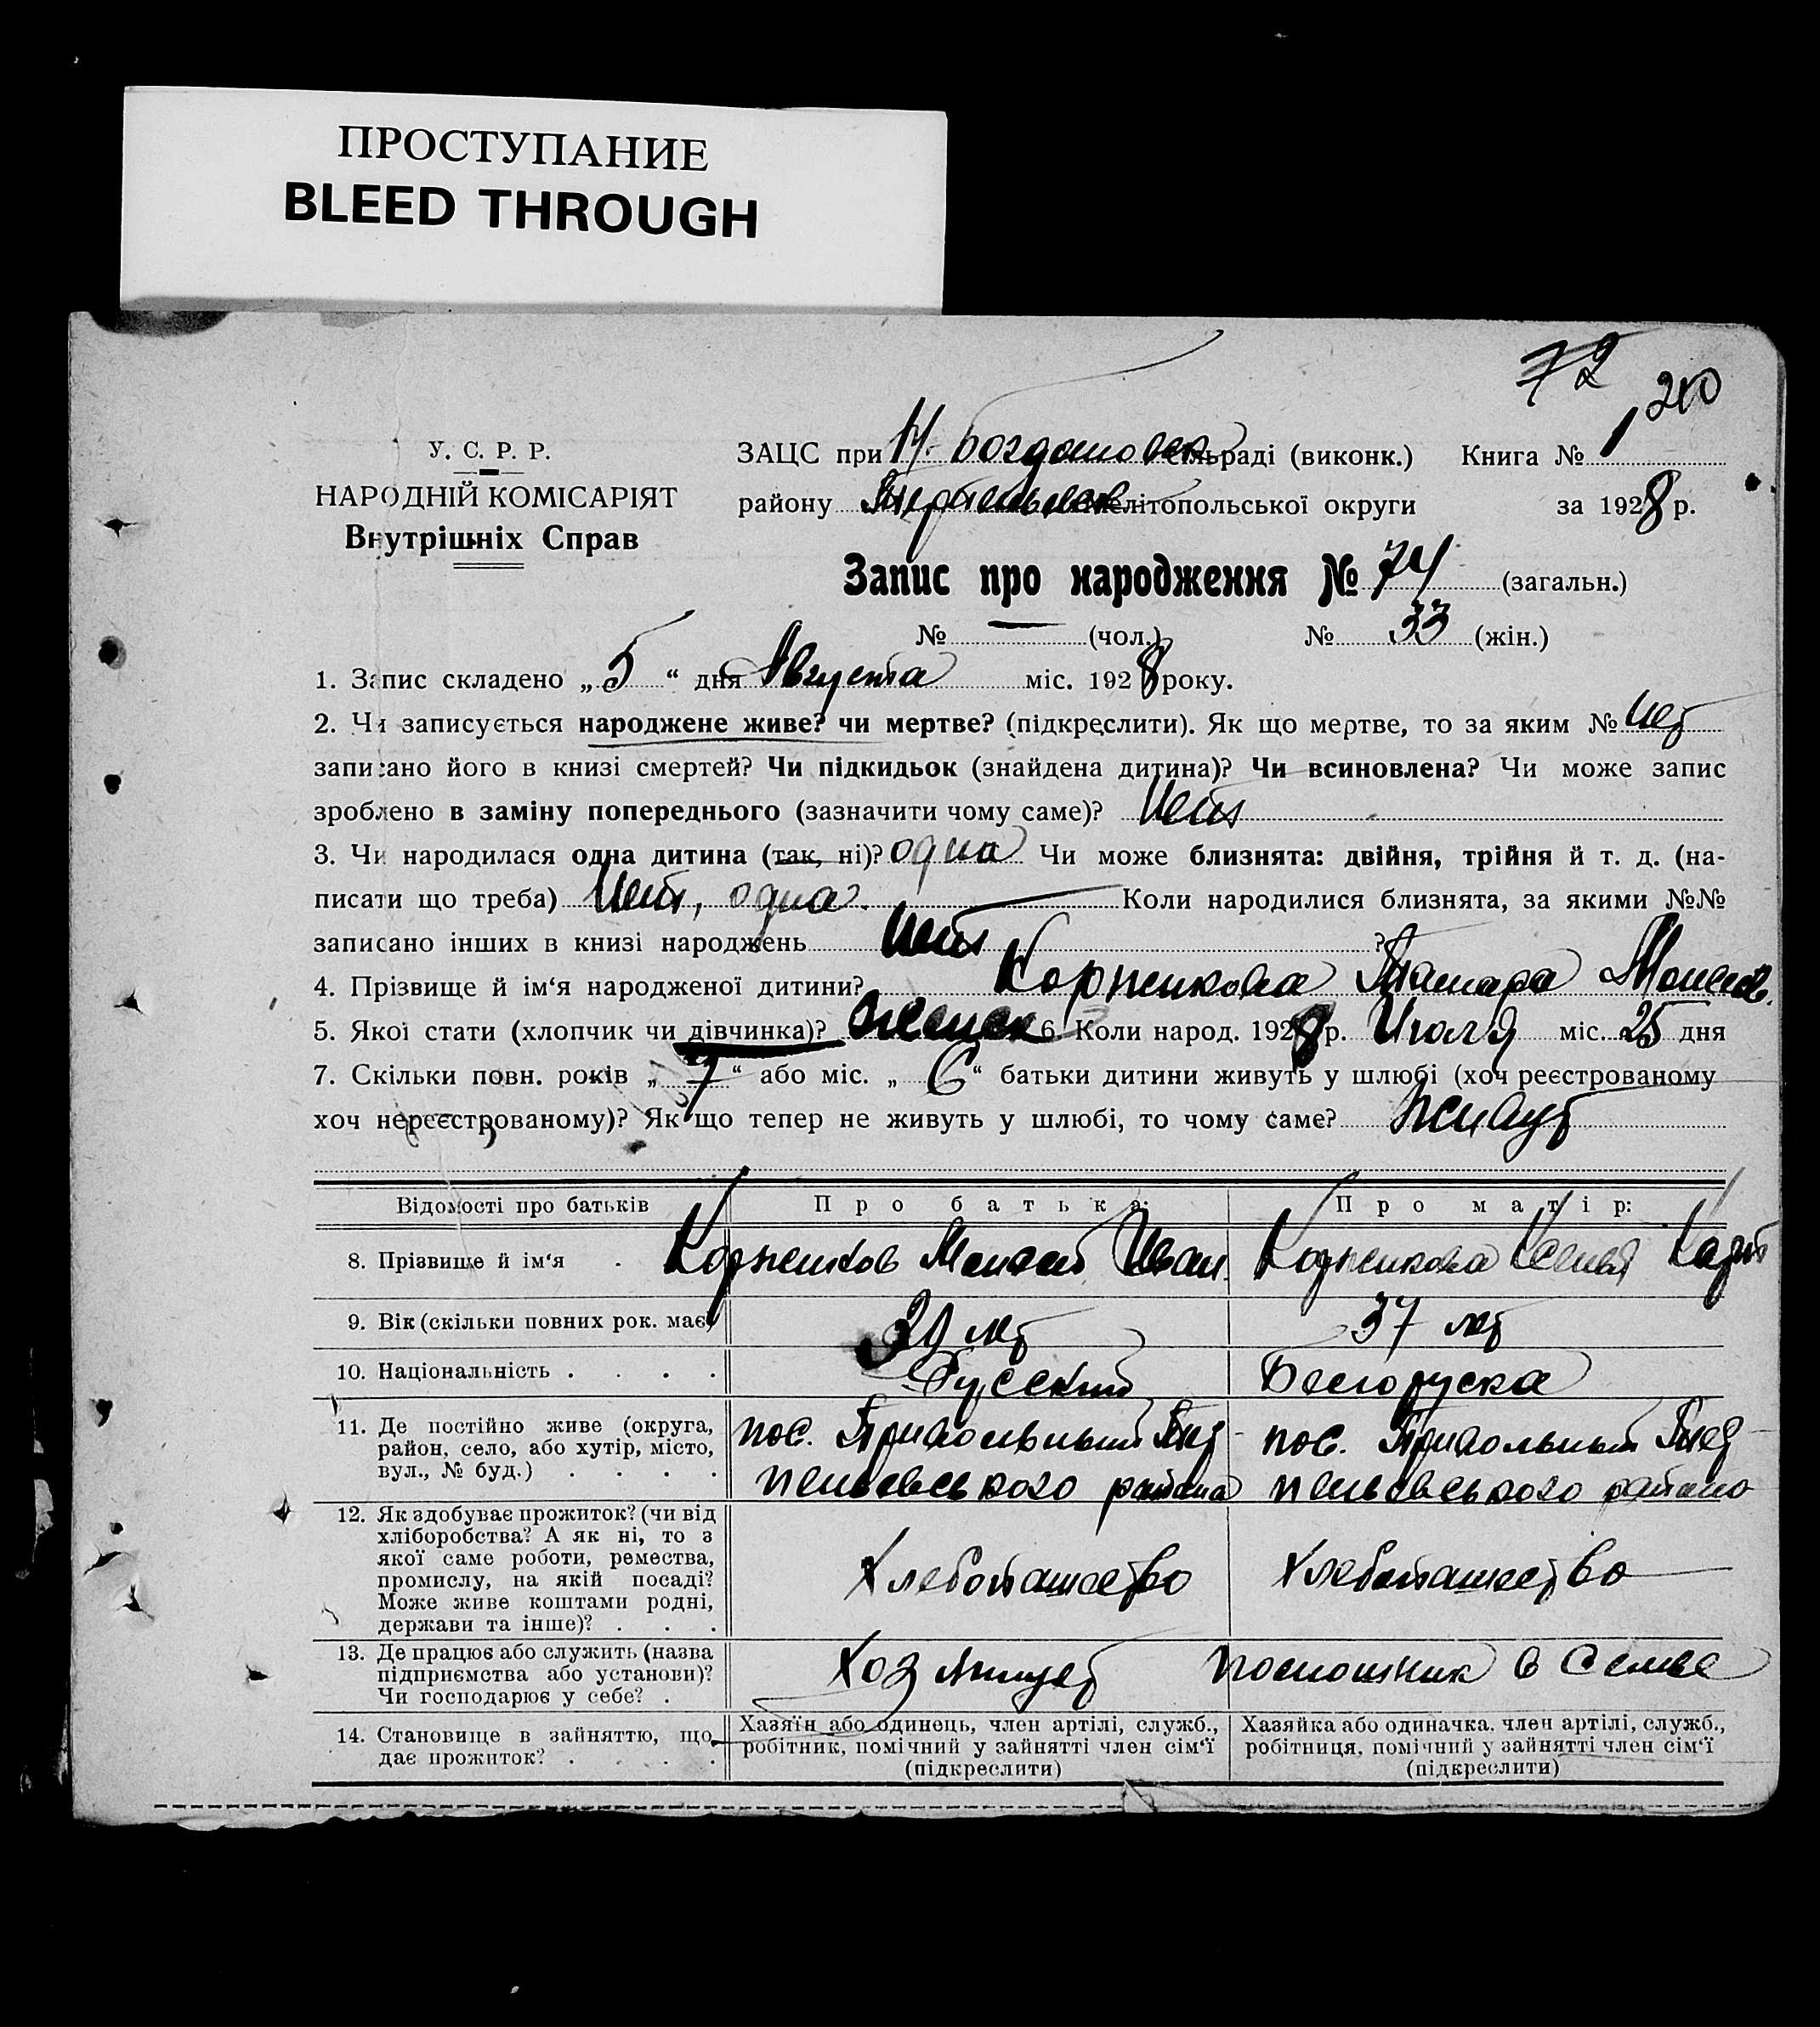 ПРОСТУПАНИЕ
BLEED THROUGH
72
200
У. С. Р. Р.
НАРОДНІЙ КОМІСАРІЯТ
Внутрішніх Справ
ЗАЦС при Н. Богдановск сільраді (виконк.) Книга № 1
району Терпеньевск Мелітопольської округи за 1928 р.
Запис про народження № 74 (загальн.)
№ — (чол.) № 33 (жін.)
1. Запис складено „ 5 “ дня Августа міс. 1928 року.
2. Чи записується народжене живе? чи мертве? (підкреслити). Як що мертве, то за яким № нет
записано його в книзі смертей? Чи підкидьок (знайдена дитина)? Чи всиновлена? Чи може запис
зроблено в заміну попереднього (зазначити чому саме)? Нет
3. Чи народилася одна дитина (так, ні)? одна Чи може близнята: двійня, трійня й т. д. (на-
писати що треба) Нет, одна. Коли народилися близнята, за якими №№
записано інших в книзі народжень нет ?
4. Прізвище й ім‘я народженої дитини? Корненкова Тамара Моисеев.
5. Якої стати (хлопчик чи дівчинка)? Женск 6. Коли народ. 1928 р. Июля міс. 25 дня
7. Скільки повн. років „ 7 “ або міс. „ 6 “ батьки дитини живуть у шлюбі (хоч реєстрованому
хоч нереєстрованому)? Як що тепер не живуть у шлюбі, то чому саме? живут
Відомості про батьків Про батька: Про матір:
8. Прізвище й ім‘я . Корненков Моисей Иван. Корненкова Ксения Карп
9. Вік (скільки повних рок. має) лет 37 лет
10. Національність . . . . Русский Белоруска
11. Де постійно живе (округа,
район, село, або хутір, місто,
вул., № буд.) . . . .
пос. Привольный Тер-
пеньевського района
пос. Привольный Тер-
пеньевського района
12. Як здобуває прожиток? (чи від
хліборобства? А як ні, то з
якої саме роботи, ремества,
промислу, на якій посаді?
Може живе коштами родні,
держави та інше)? . . .
Хлебопашество
Хлебопашество
13. Де працює або служить (назва
підприємства або установи)?
Чи господарює у себе? .
Хоз
помошник в Семье
14. Становище в зайняттю, що
дає прожиток? . . . .
Хазяїн або одинець, член артілі, служб.,
робітник, помічний у зайнятті член сім‘ї
(підкреслити)
Хазяйка або одиначка, член артілі, служб.,
робітниця, помічний у зайнятті член сім‘ї
(підкреслити)